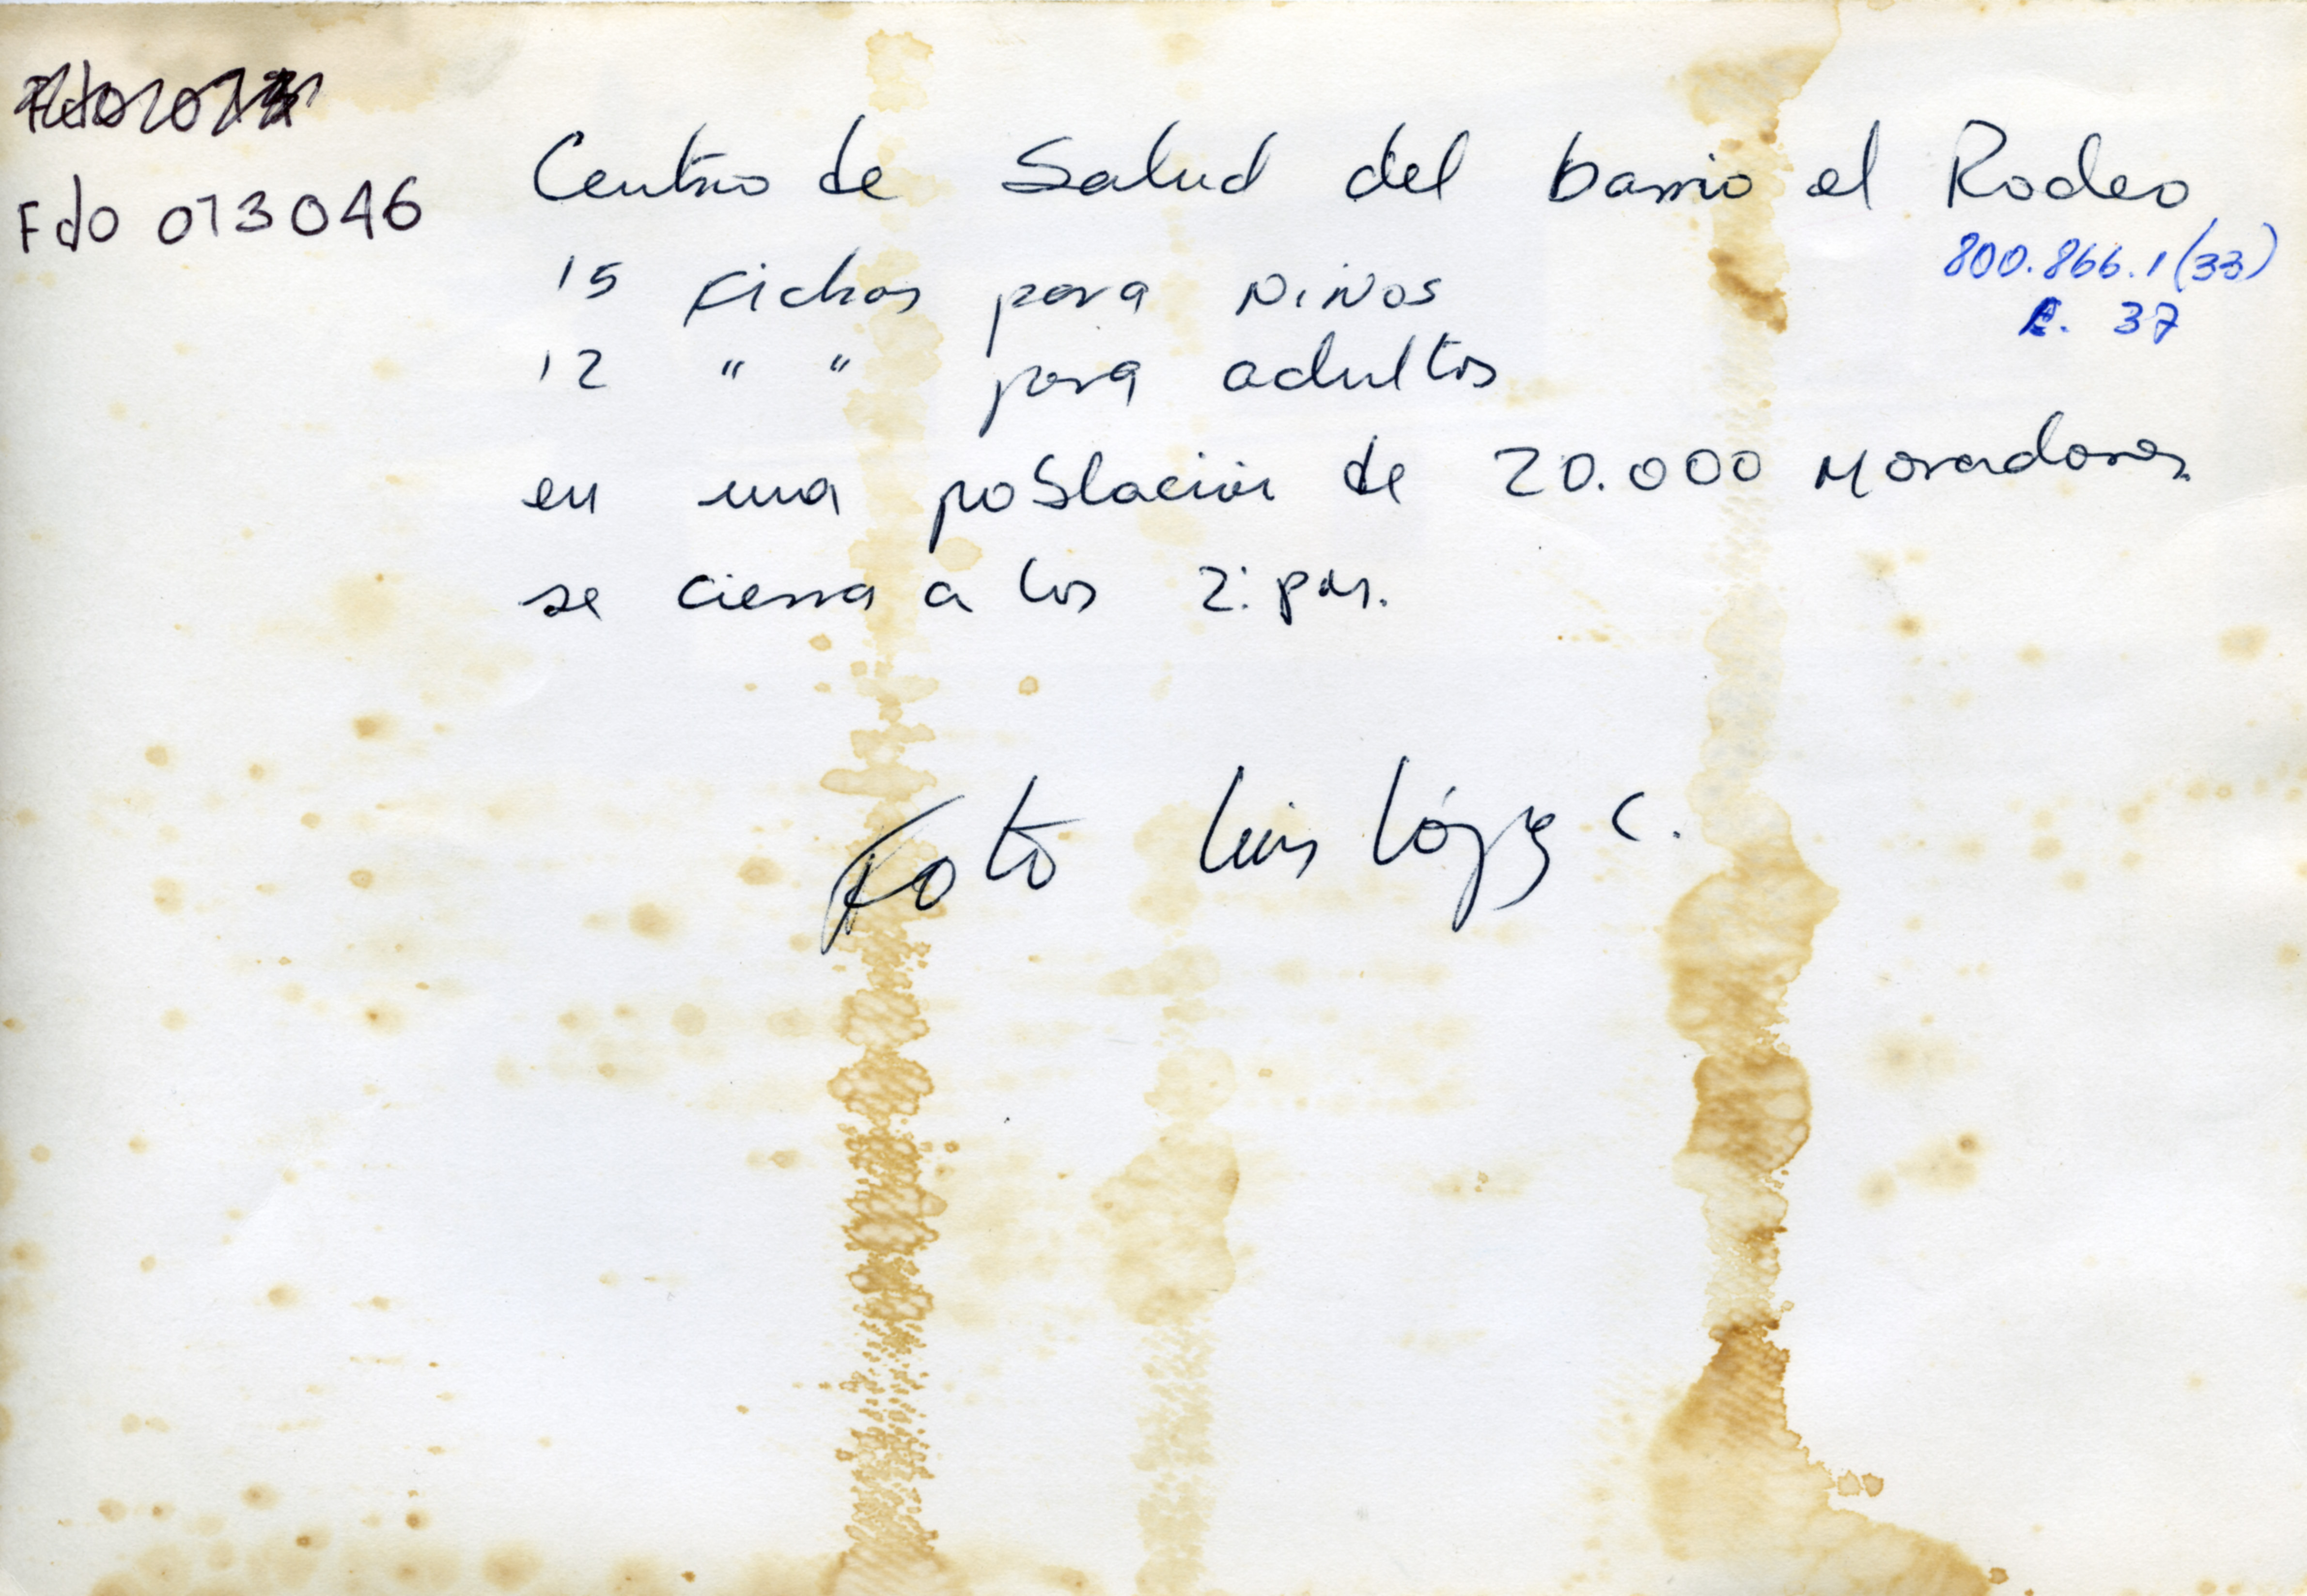 Fdo 013046
Centro de Salud del barrio el Rodeo
800.866.1(33)
E. 37
15 Fichas para niños
12 " " para adultos
en una poblacion de 20.000 moradores
se cierra a las 2: pm.
Foto Luis López C.